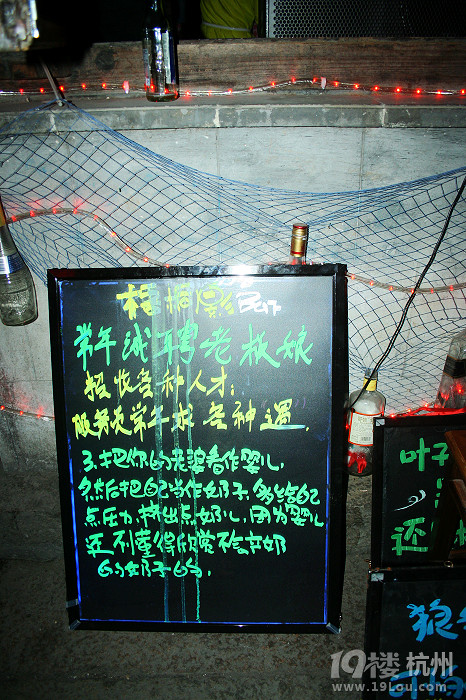 梧桐影 BAR
常年诚聘老板娘
招收各种人才；
服务员常年求各种遇.
3.把你的老婆看作婴儿,
然后把自己当作奶子,多给自己
点压力,挤出点奶儿,因为婴儿
还不懂得欣赏不会产奶
的奶子的.
叶子
还
狼
19楼 杭州
www.19Lou.com